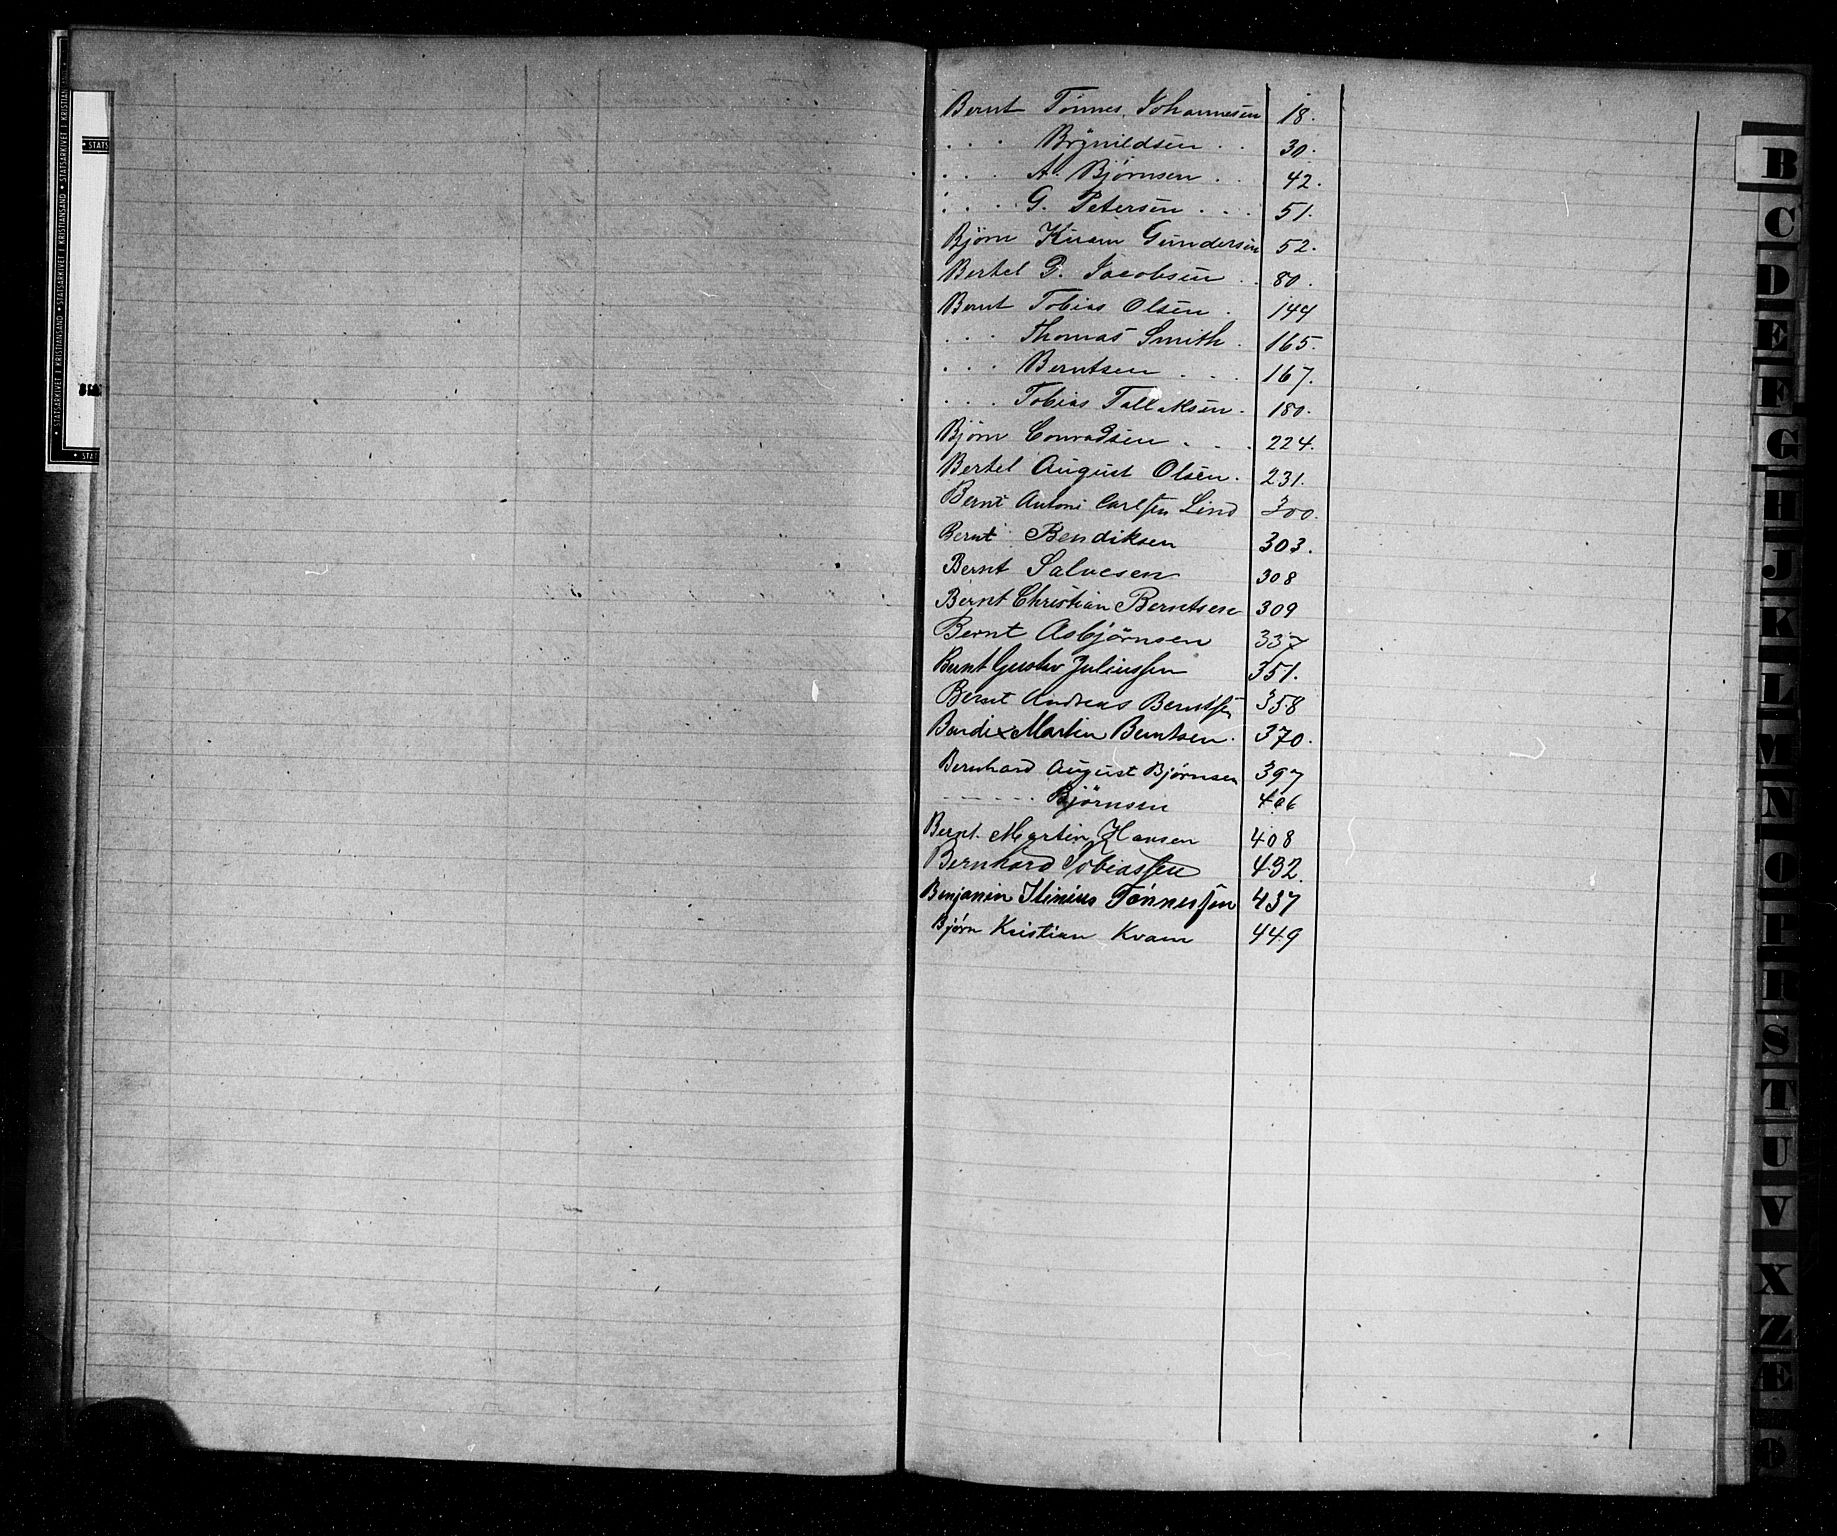 Bernt Tönnes Johannesen 18.
. . . Brynildsen . . 30.
. . . A. Björnsen . . 42.
. . . G. Petersen . . . 51.
Bjørn Kvam Gundersen 52.
Bertel P. Jacobsen . . 80.
Bernt Tobias Olsen . 144
. . . Thomas Smith . 165.
. . . Berntsen . . . 167.
. . . Tobias Tallaksen . 180.
Bjørn Conradsen . . . 224.
Bertel August Olsen . 231.
Bernt Antoni Carlsen Lind 300.
Bernt Bendiksen 303.
Bernt Salvesen 308
Bernt Christian Berntsen 309
Bernt Asbjörnsen 337
Bernt Gustav Juliussen 351.
Bernt Andreas Berntsen 358
Bendix Martin Berntsen . 370.
Bernhard August Bjørnsen 397
- - - - - - Bjørnsen 406
Bernt. Martin Hansen 408
Bernhard Tobiassen 432.
Benjamin Tönnessen 437
Bjørn Kristian Kvam 449
B
C
D
E
F
G
H
J
K
L
M
N
O
P
R
S
T
U
V
X
Z
Æ
Ø
STATSARKIVET I KRISTIANSAND • STATSARKIVET I KRISTIANSAND • STATSARKIVET I KRISTIANSAND
• STATS
• STATS